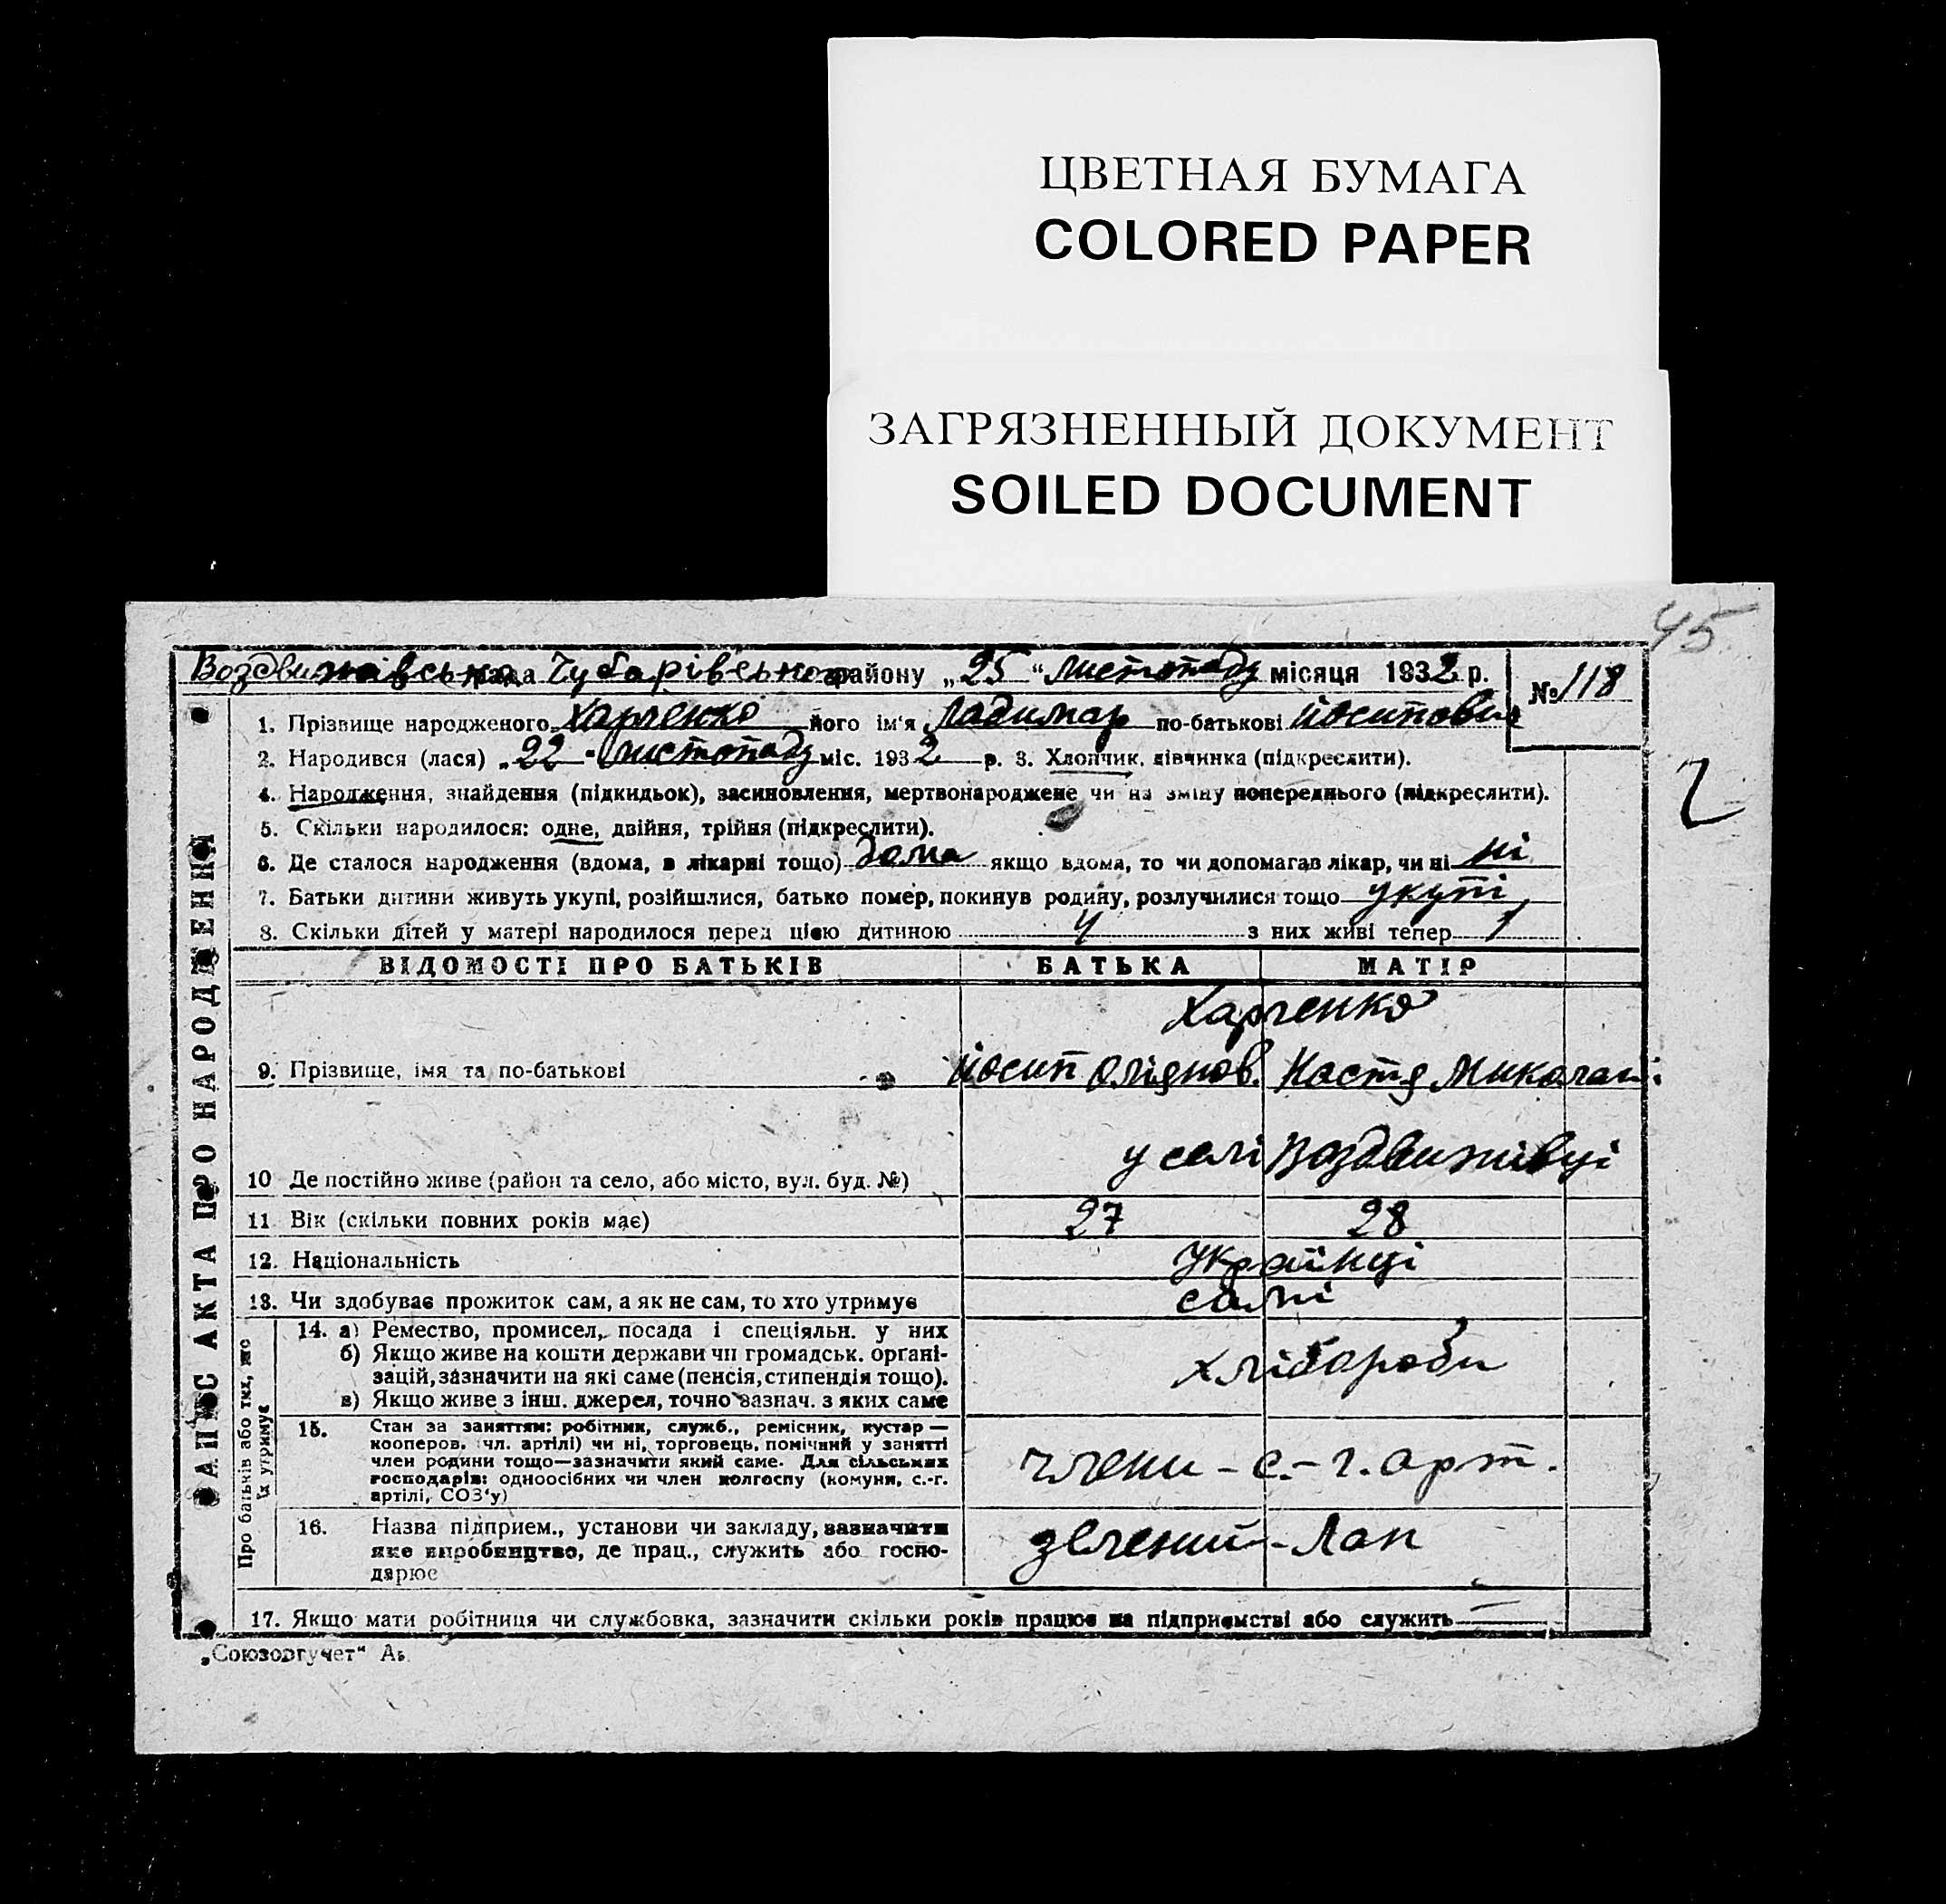 ЦВЕТНАЯ БУМАГА
COLORED PAPER
ЗАГРЯЗНЕННЫЙ ДОКУМЕНТ
SOILED DOCUMENT
45
Воздвижівська рада Чубарівського району „25“ листопаду місяця 1932 р.
№ 118
1. Прізвище народженого Харченко його ім'я Ладимар по-батькові Йосипович
2. Народився (лася) „22“ листопаду міс. 1932 р. 3. Хлопчик, дівчинка (підкреслити).
2
4. Народження, знайдення (підкидьок), засиновлення, мертвонароджене чи на зміну попереднього (підкреслити).
5. Скільки народилося: одне, двійня, трійня (підкреслити).
6. Де сталося народження (вдома, в лікарні тощо) дома якщо вдома, то чи допомагав лікар, чи ні ні
7. Батьки дитини живуть укупі, розійшлися, батько помер, покинув родину, розлучилися тощо укупі
8. Скільки дітей у матері народилося перед цією дитиною 4 з них живі тепер 1
ЗАПИС АКТА ПРО НАРОДЖЕННЯ
ВІДОМОСТІ ПРО БАТЬКІВ БАТЬКА МАТІР
Харченко
9. Прізвище, імя та по-батькові Йосип Настя
10 Де постійно живе (район та село, або місто, вул. буд. №) у селі Воздвижівці
11 Вік (скільки повних років має) 27 28
12. Національність Українці
13. Чи здобуває прожиток сам, а як не сам, то хто утримує самі
Про батьків або тих, що їх утримує
14. а) Ремество, промисел, посада і спеціяльн. у них
б) Якщо живе на кошти держави чи громадськ. органі-
зацій, зазначити на які саме (пенсія, стипендія тощо).
в) Якщо живе з інш. джерел, точно зазнач. з яких саме
хлібороби
15. Стан за заняттям: робітник, служб., ремісник, кустар —
кооперов. чл. артілі) чи ні, торговець, помічний у занятті
член родини тощо—зазначити який саме. Для сільських
господарів: одноосібних чи член колгоспу (комуни, с.-г.
артілі, СОЗ'у)
члени - с.-г. арт.
16. Назва підприєм., установи чи закладу, зазначити
яке виробництво, де прац., служить або госпо-
дарює
17. Якщо мати робітниця чи службовка, зазначити скільки років працює на підприємстві або служить
„Союзоргучет“